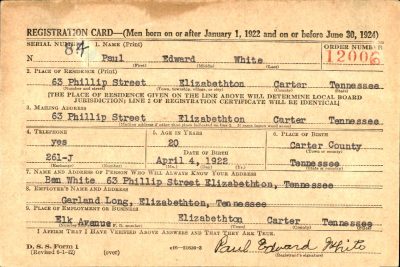 REGISTRATION CARD—(Men born on or after January 1, 1922 and on or before June 30, 1924)
SERIAL NUMBER 1. NAME (Print) ORDER NUMBER
N 84 Paul Edward White 12006
(First) (Middle) (Last)
2. PLACE OF RESIDENCE (Print)
63 Phillip Street Elizabethton Carter Tennessee
(Number and street) (Town, township, village, or city) (County) (State)
[THE PLACE OF RESIDENCE GIVEN ON THE LINE ABOVE WILL DETERMINE LOCAL BOARD
JURISDICTION; LINE 2 OF REGISTRATION CERTIFICATE WILL BE IDENTICAL]
3. MAILING ADDRESS
63 Phillip Street Elizabethton Carter Tennessee
[Mailing address if other than place indicated on line 2. If same insert word same]
4. TELEPHONE 5. AGE IN YEARS 6. PLACE OF BIRTH
yes 20 Carter County
DATE OF BIRTH (Town or county)
261-J April 4, 1922 Tennessee
(Exchange) (Number) (Mo.) (Day) (Yr.) (State or country)
7. NAME AND ADDRESS OF PERSON WHO WILL ALWAYS KNOW YOUR ADDRESS
Ben White 63 Phillip Street Elizabethton, Tennessee
8. EMPLOYER'S NAME AND ADDRESS
Gerland Long, Elizabethton, Tennessee
9. PLACE OF EMPLOYMENT OR BUSINESS
Elk Avenue, Elizabethton Carter Tennessee
(Town) (County) (State)
I AFFIRM THAT I HAVE VERIFIED ABOVE ANSWERS AND THAT THEY ARE TRUE.
D. S. S. Form 1
(Revised 6-1-42) (over) Paul Edward White
(Registrant's signature)